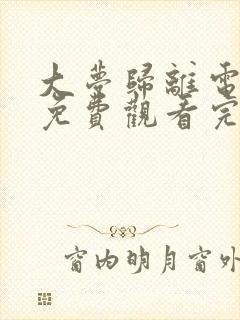 大夢歸離電
免費觀看完
窗内明月窗外